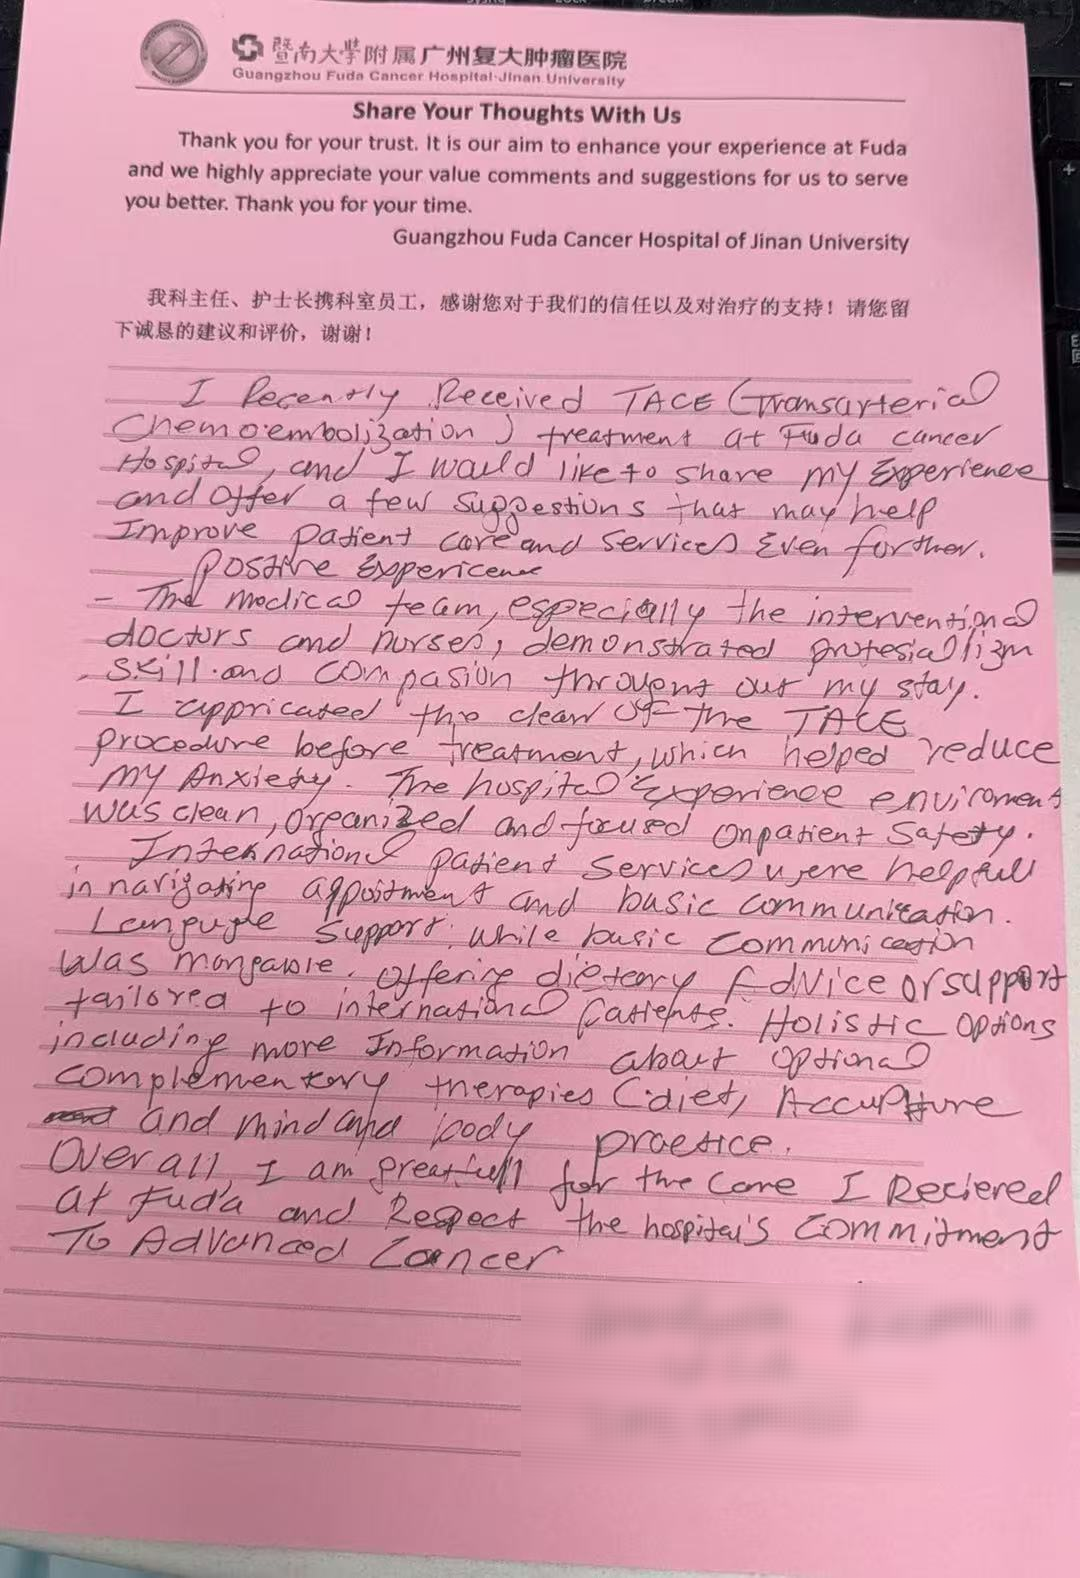 暨南大學附属广州复大肿瘤医院
Guangzhou Fuda Cancer Hospital·Jinan University
Share Your Thoughts With Us
Thank you for your trust. It is our aim to enhance your experience at Fuda
and we highly appreciate your value comments and suggestions for us to serve
you better. Thank you for your time.
Guangzhou Fuda Cancer Hospital of Jinan University
我科主任、护士长携科室员工，感谢您对于我们的信任以及对治疗的支持！请您留
下诚恳的建议和评价，谢谢！
I Recently Received TACE (Transarterial
Chemoembolization) treatment at Fuda cancer
Hospital, and I would like to share my Experience
and offer a few suggestions that may help
Improve patient care and services Even further.
Positive Expericence
- The medical team, especially the interventional
doctors and nurses, demonstrated protesiallizm
skill and compasion througent out my stay.
I appricated the clear of the TACE
procedure before treatment, which helped reduce
my Anxiety. The hospital Experience enviroment
was clean, organized and focused on patient Safety.
International patient services were helpfull
in navigating appoitment and basic communication.
Languge support: while basic communication
was mangable. offering dietary Advice or support
tailored to international patients. Holistic options
including more Information about optional
complementary therapies (diet, Accupture
and mind and body practice.
Overall, I am greatfull for the care I Recieved
at Fuda and Respect the hospital's commitment
To Advanced Cancer